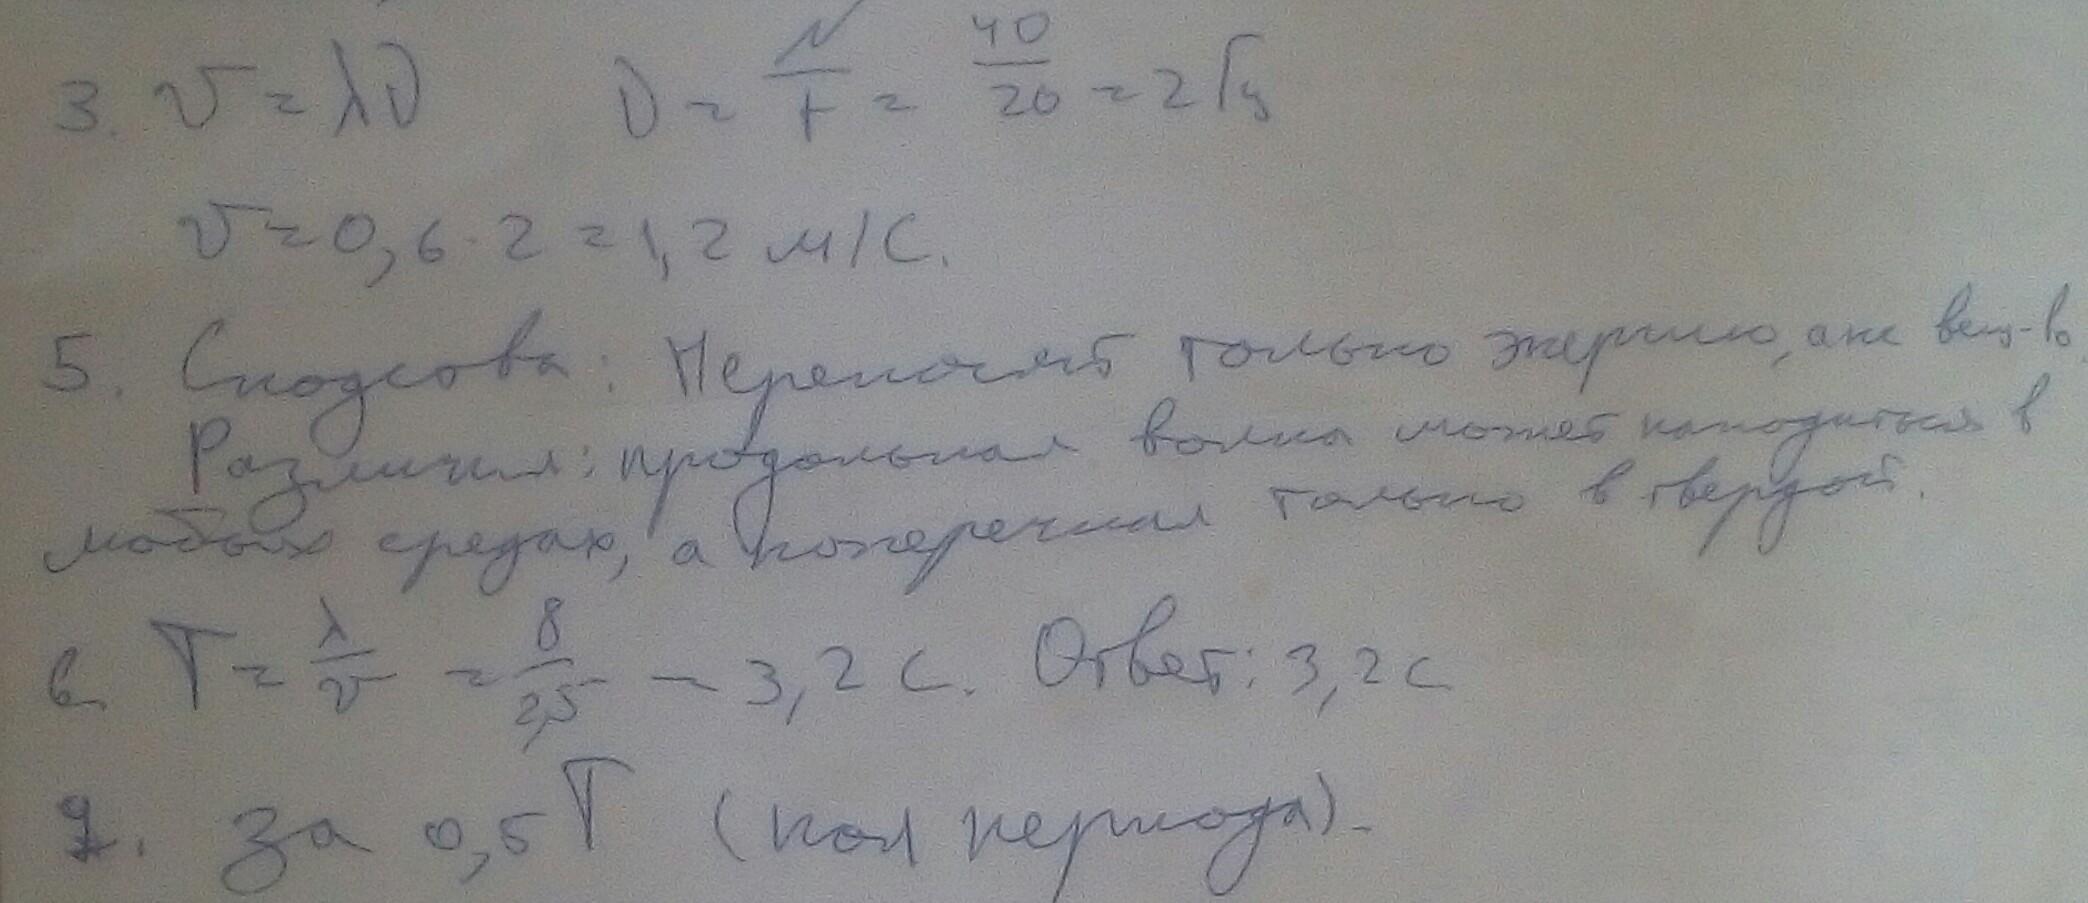 3. υ = λν ν = N/t = 40/20 = 2 Гц
υ = 0,6 · 2 = 1,2 м/с.
5. Сходства: Переносят только энергию, а не вещ-во.
Различия: продольная волна может находиться в
любых средах, а поперечная только в твердой.
6. T = λ/υ = 8/2,5 = 3,2 с. Ответ: 3,2 с
7. за 0,5 T (пол периода).